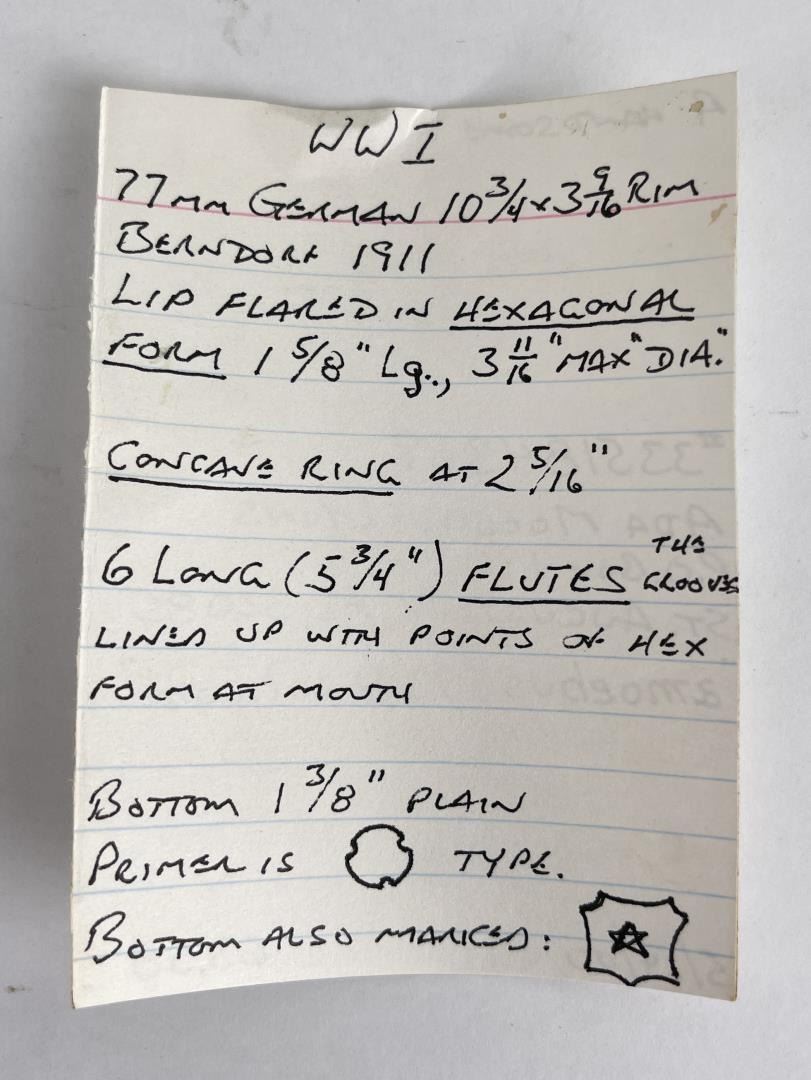 WWI
77mm GERMAN 10 3/4 x 3 9/16 RIM
BERNDORF 1911
LIP FLARED IN HEXAGONAL
FORM 1 5/8" Lg., 3 11/16" "MAX" DIA."
CONCAVE RING AT 2 5/16"
6 LONG (5 3/4") FLUTES THE GROOVES
LINED UP WITH POINTS OF HEX
FORM AT MOUTH
BOTTOM 1 3/8" PLAIN
PRIMER IS TYPE.
BOTTOM ALSO MARKED: